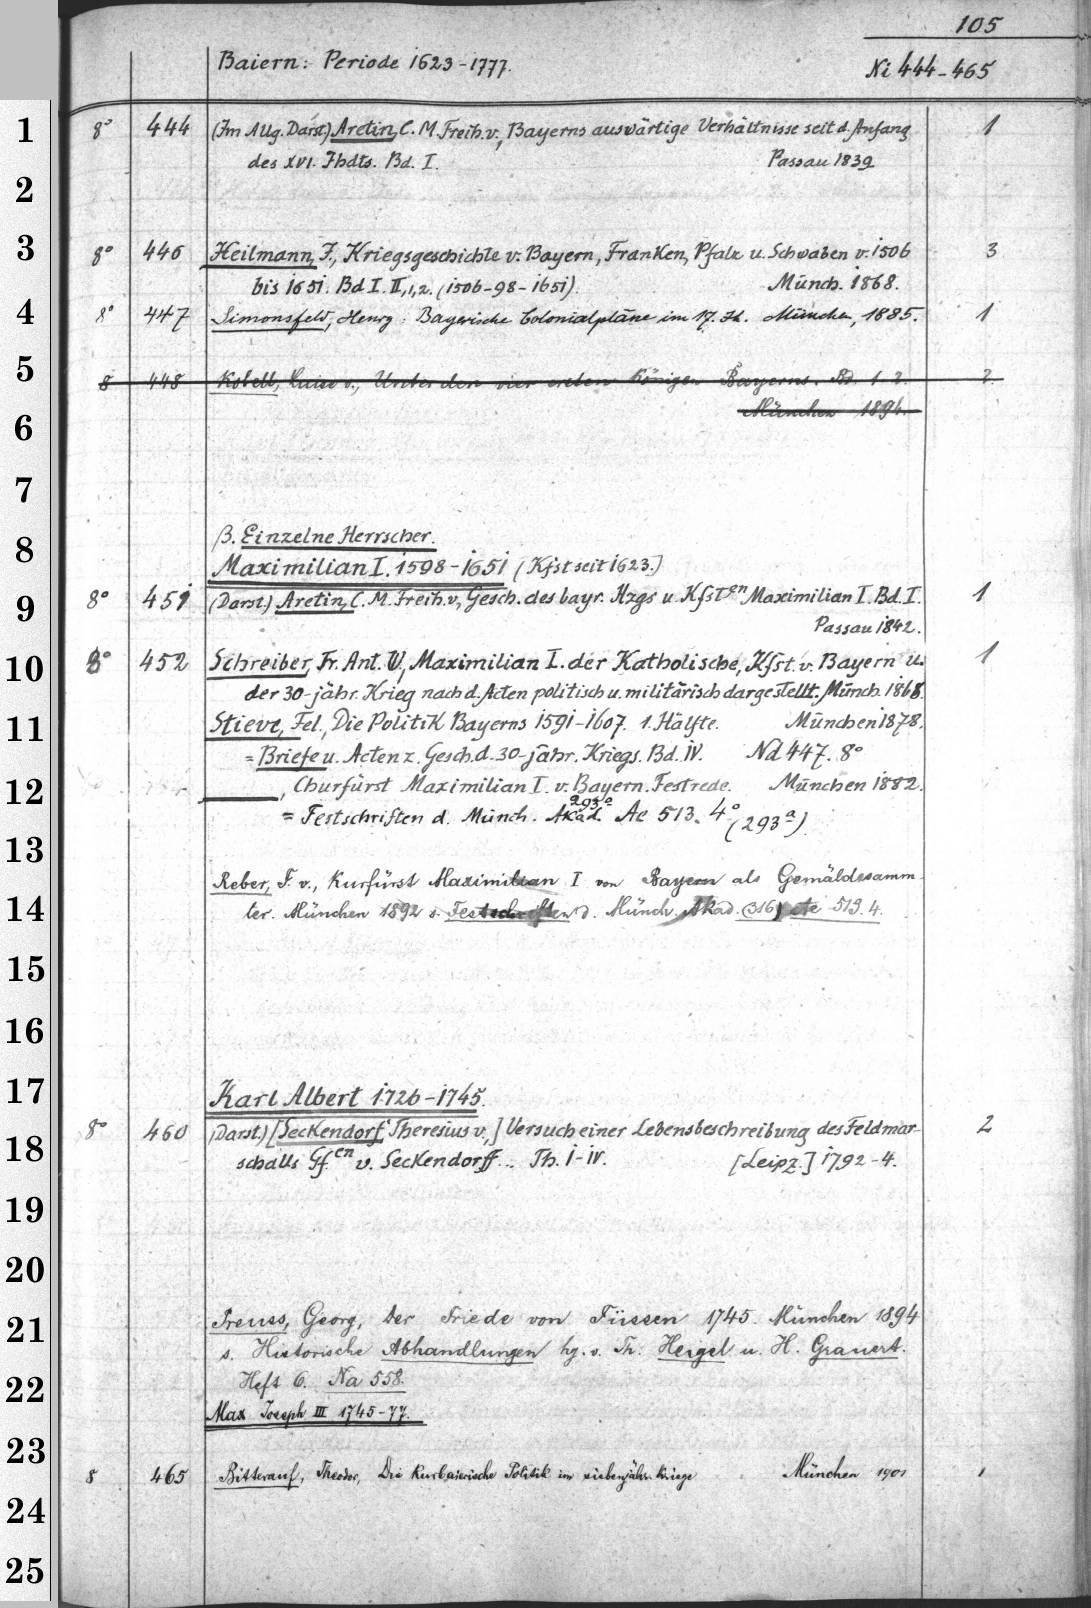 105
Baiern: Periode 1623-1777.
Ni 444-465
1
8° 444 (Im Allg. Darst) Aretin, C. M. Freih. v., Bayerns auswärtige Verhältnisse seit d. Anfang 1
des XVI. Jhdts. Bd. I. Passau 1839
2
3
8° 446 Heilmann, J., Kriegsgeschichte v. Bayern, Franken, Pfalz u. Schwaben v. 1506 3
bis 1651. Bd I. II,1,2. (1506-98-1651). Münch. 1868.
4
8° 447 Simonsfeld, Henry: Bayerische Colonialpläne im 17. Jh. München, 1885. 1
5
8 448 Kobell, Luise v., Unter den vier ersten Königen Bayerns. Bd. 1. 2. 2.
München 1894.
6
7
β. Einzelne Herrscher.
8
Maximilian I. 1598-1651 (Kfst seit 1623.)
9
8° 451 (Darst.) Aretin, C. M. Freih. v., Gesch. des bayr. Hzgs u Kfsten Maximilian I. Bd. I. 1
Passau 1842.
10
8° 452 Schreiber, Fr. Ant. W., Maximilian I. der Katholische, Kfst. v. Bayern u. 1
der 30-jähr. Krieg nach d. Acten politisch u. militärisch dargestellt. Münch. 1868.
11
Stieve, Fel., Die Politik Bayerns 1591-1607. 1. Hälfte. München 1878.
= Briefe u. Acten z. Gesch. d. 30-jähr. Kriegs. Bd. IV. Nd 447. 8°
12
——, Churfürst Maximilian I. v. Bayern. Festrede. München 1882.
293a
= Festschriften d. Münch. Akad. Ae 513. 4° (293a)
13
Reber, F. v., Kurfürst Maximilian I von Bayern als Gemäldesamm-
14
ler. München 1892 s. Festschriften d. Münch. Akad. (316) 513. 4.
15
16
17
Karl Albert 1726-1745.
8° 460 (Darst.) [Seckendorf Theresius v.,] Versuch einer Lebensbeschreibung des Feldmar- 2
18
schalls Gfen v. Seckendorff... Th. I-IV. [Leipz.] 1792-4.
19
20
21
Preuss, Georg, Der Friede von Füssen 1745. München 1894
s. Historische Abhandlungen hg. v. Th. Heigel u. H. Grauert.
22
Heft 6. Na 558.
Max Joseph III 1745-77.
23
8 465 Bitterauf, Theodor, Die Kurbairische Politik im siebenjähr. Kriege München 1901 1
24
25